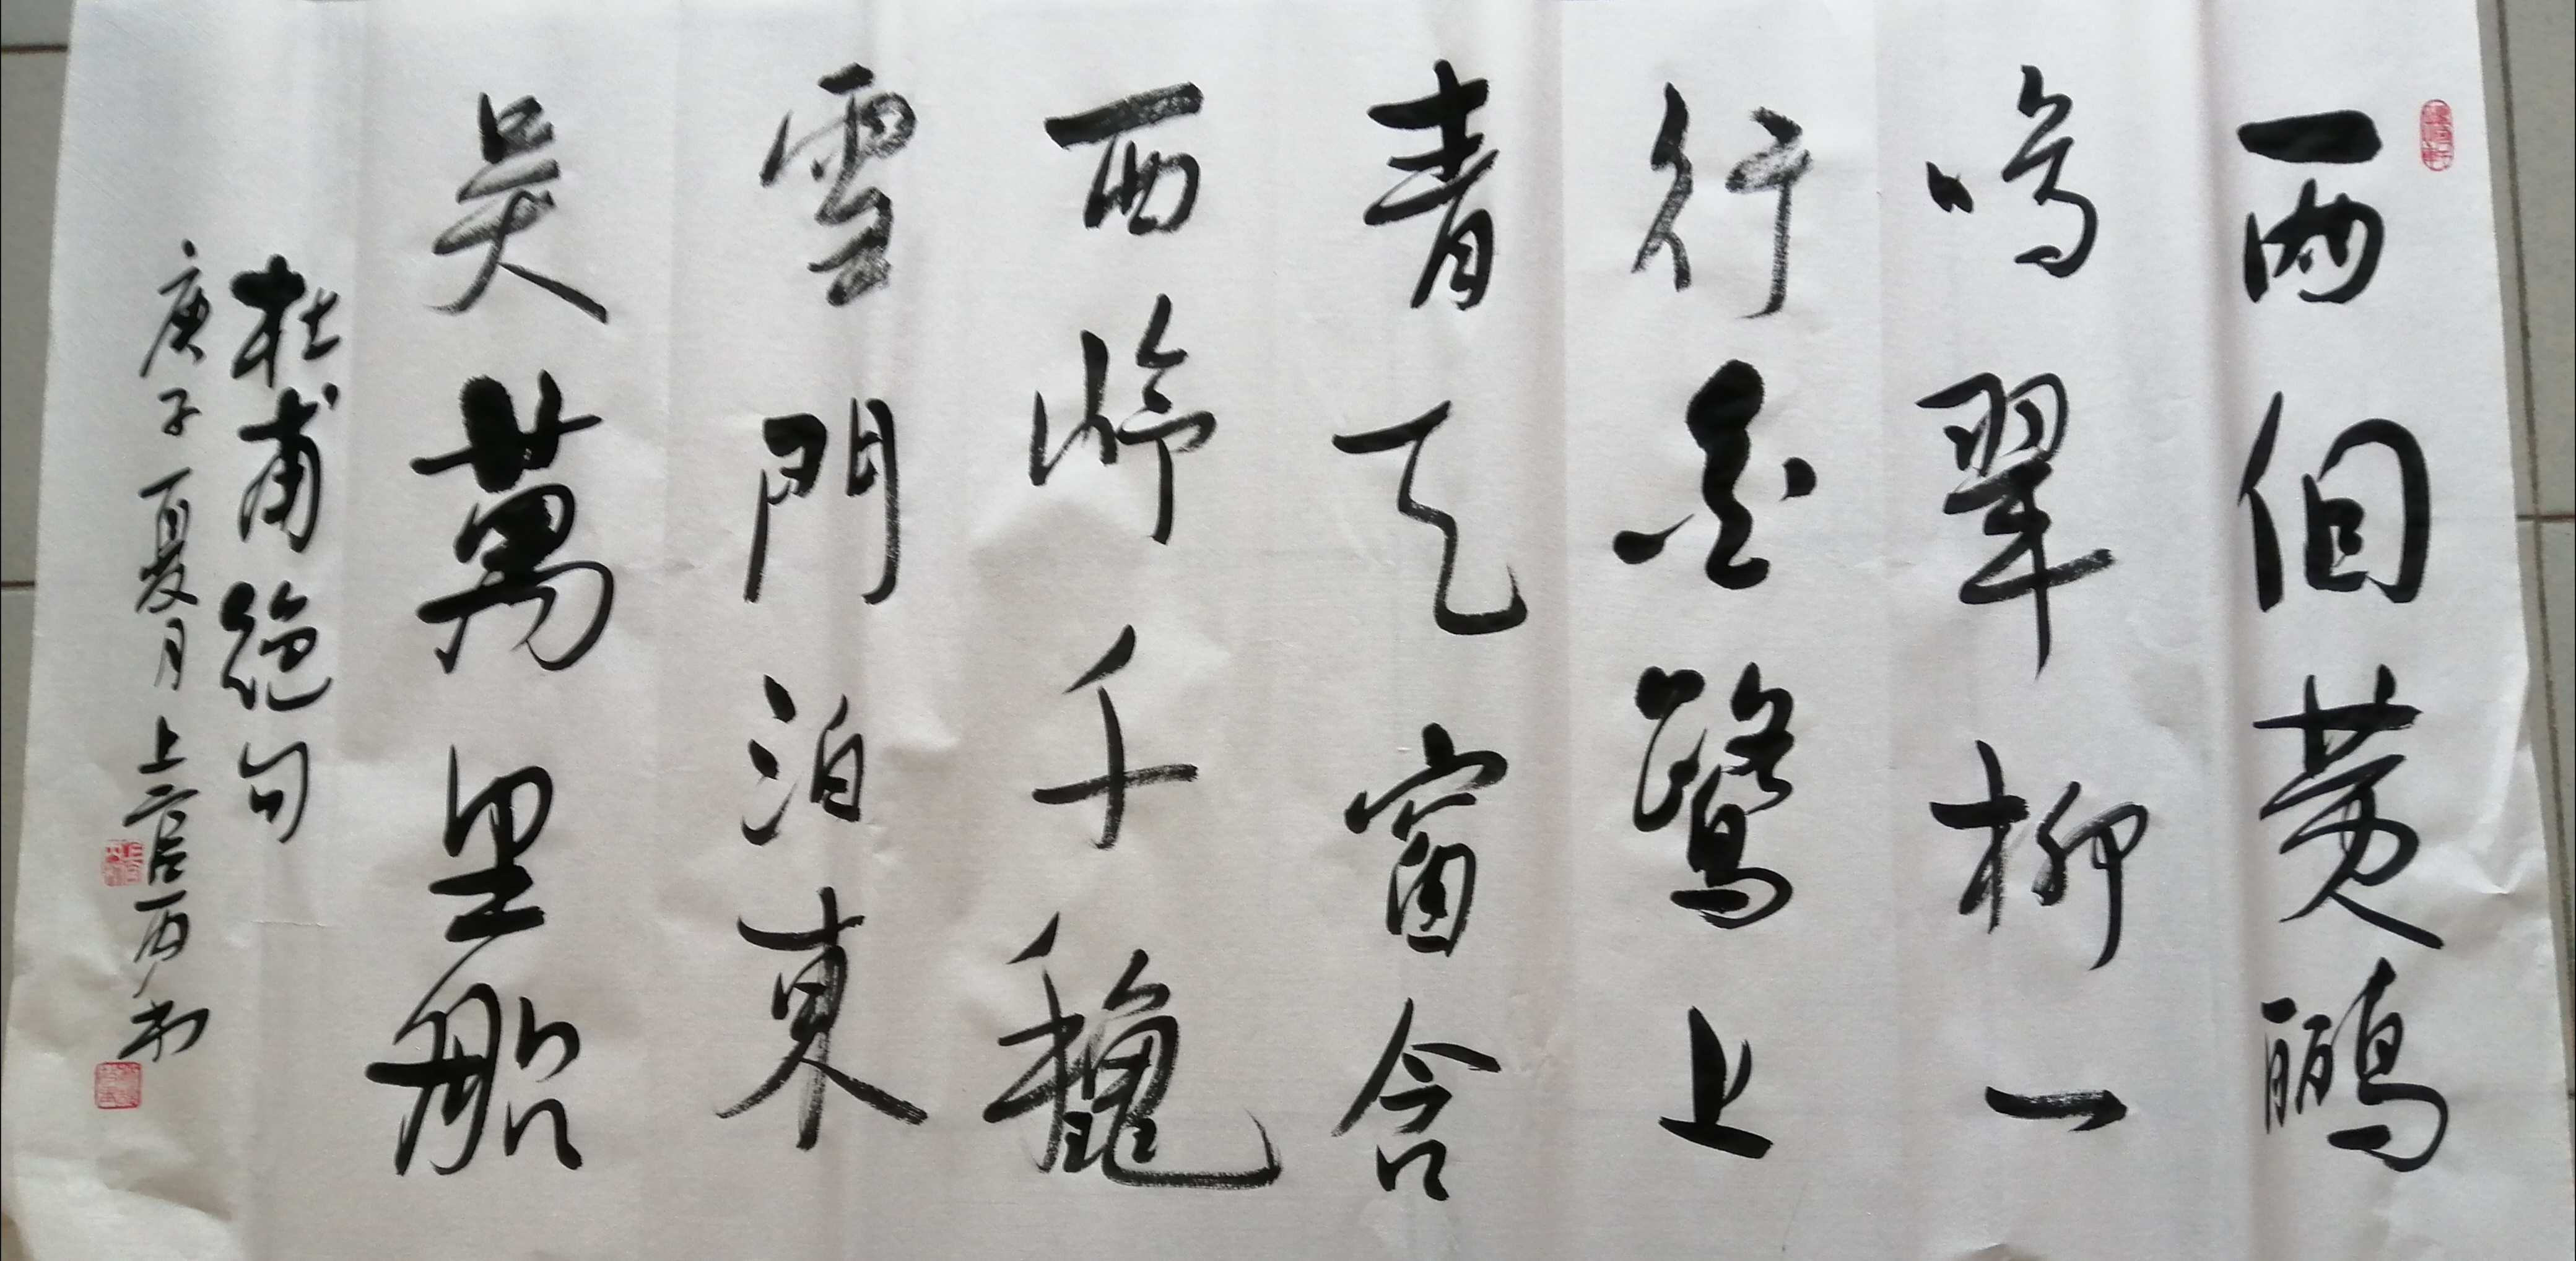 兩個黄鸝
鳴翠柳一
行白鷺上
青天窗含
西岭千龝
雪門泊東
吴萬里船
杜甫絶句
庚子夏月上官丙书